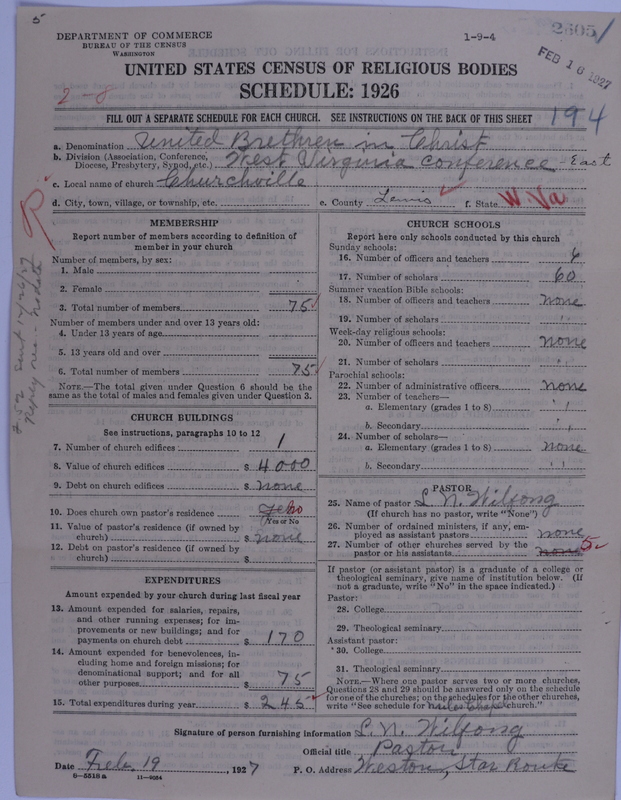 5
DEPARTMENT OF COMMERCE
BUREAU OF THE CENSUS
WASHINGTON
1-9-4
2605/
FEB 16 1927
UNITED STATES CENSUS OF RELIGIOUS BODIES
SCHEDULE: 1926
2-8
FILL OUT A SEPARATE SCHEDULE FOR EACH CHURCH. SEE INSTRUCTIONS ON THE BACK OF THIS SHEET
194
a. Denomination United Brethren in Christ
b. Division (Association, Conference, Diocese, Presbytery, Synod, etc.) West Virginia Conference - East
c. Local name of church Churchville
d. City, town, village, or township, etc. e. County Lewis f. State W. Va
MEMBERSHIP
Report number of members according to definition of
member in your church
Number of members, by sex:
1. Male
2. Female
3. Total number of members 75
Number of members under and over 13 years old:
4. Under 13 years of age
5. 13 years old and over
6. Total number of members 75
NOTE.—The total given under Question 6 should be the
same as the total of males and females given under Question 3.
CHURCH BUILDINGS
See instructions, paragraphs 10 to 12
7. Number of church edifices 1
8. Value of church edifices $ 4000
9. Debt on church edifices $ none
10. Does church own pastor's residence no
Yes or No
11. Value of pastor's residence (if owned by
church) $ none
12. Debt on pastor's residence (if owned by
church) $
EXPENDITURES
Amount expended by your church during last fiscal year
13. Amount expended for salaries, repairs,
and other running expenses; for im-
provements or new buildings; and for
payments on church debt $ 170
14. Amount expended for benevolences, in-
cluding home and foreign missions; for
denominational support; and for all
other purposes $ 75
15. Total expenditures during year $ 245
CHURCH SCHOOLS
Report here only schools conducted by this church
Sunday schools:
16. Number of officers and teachers 6
17. Number of scholars 60
Summer vacation Bible schools:
18. Number of officers and teachers none
19. Number of scholars "
Week-day religious schools:
20. Number of officers and teachers none
21. Number of scholars "
Parochial schools:
22. Number of administrative officers none
23. Number of teachers—
a. Elementary (grades 1 to 8) "
b. Secondary "
24. Number of scholars—
a. Elementary (grades 1 to 8) none
b. Secondary "
PASTOR
25. Name of pastor L. N. Wilfong
(If church has no pastor, write "None")
26. Number of ordained ministers, if any, em-
ployed as assistant pastors none
27. Number of other churches served by the
pastor or his assistants none 5
If pastor (or assistant pastor) is a graduate of a college or
theological seminary, give name of institution below. (If
not a graduate, write "No" in the space indicated.)
Pastor:
28. College
29. Theological seminary
Assistant pastor:
30. College
31. Theological seminary
NOTE.—Where one pastor serves two or more churches,
Questions 28 and 29 should be answered only on the schedule
for one of the churches; on the schedules for the other churches,
write "See schedule for Chapel church."
Signature of person furnishing information L. N. Wilfong
Official title Pastor
Date Feb. 19, 1927 P. O. Address Weston, Star Route
6-5518a 11-9034